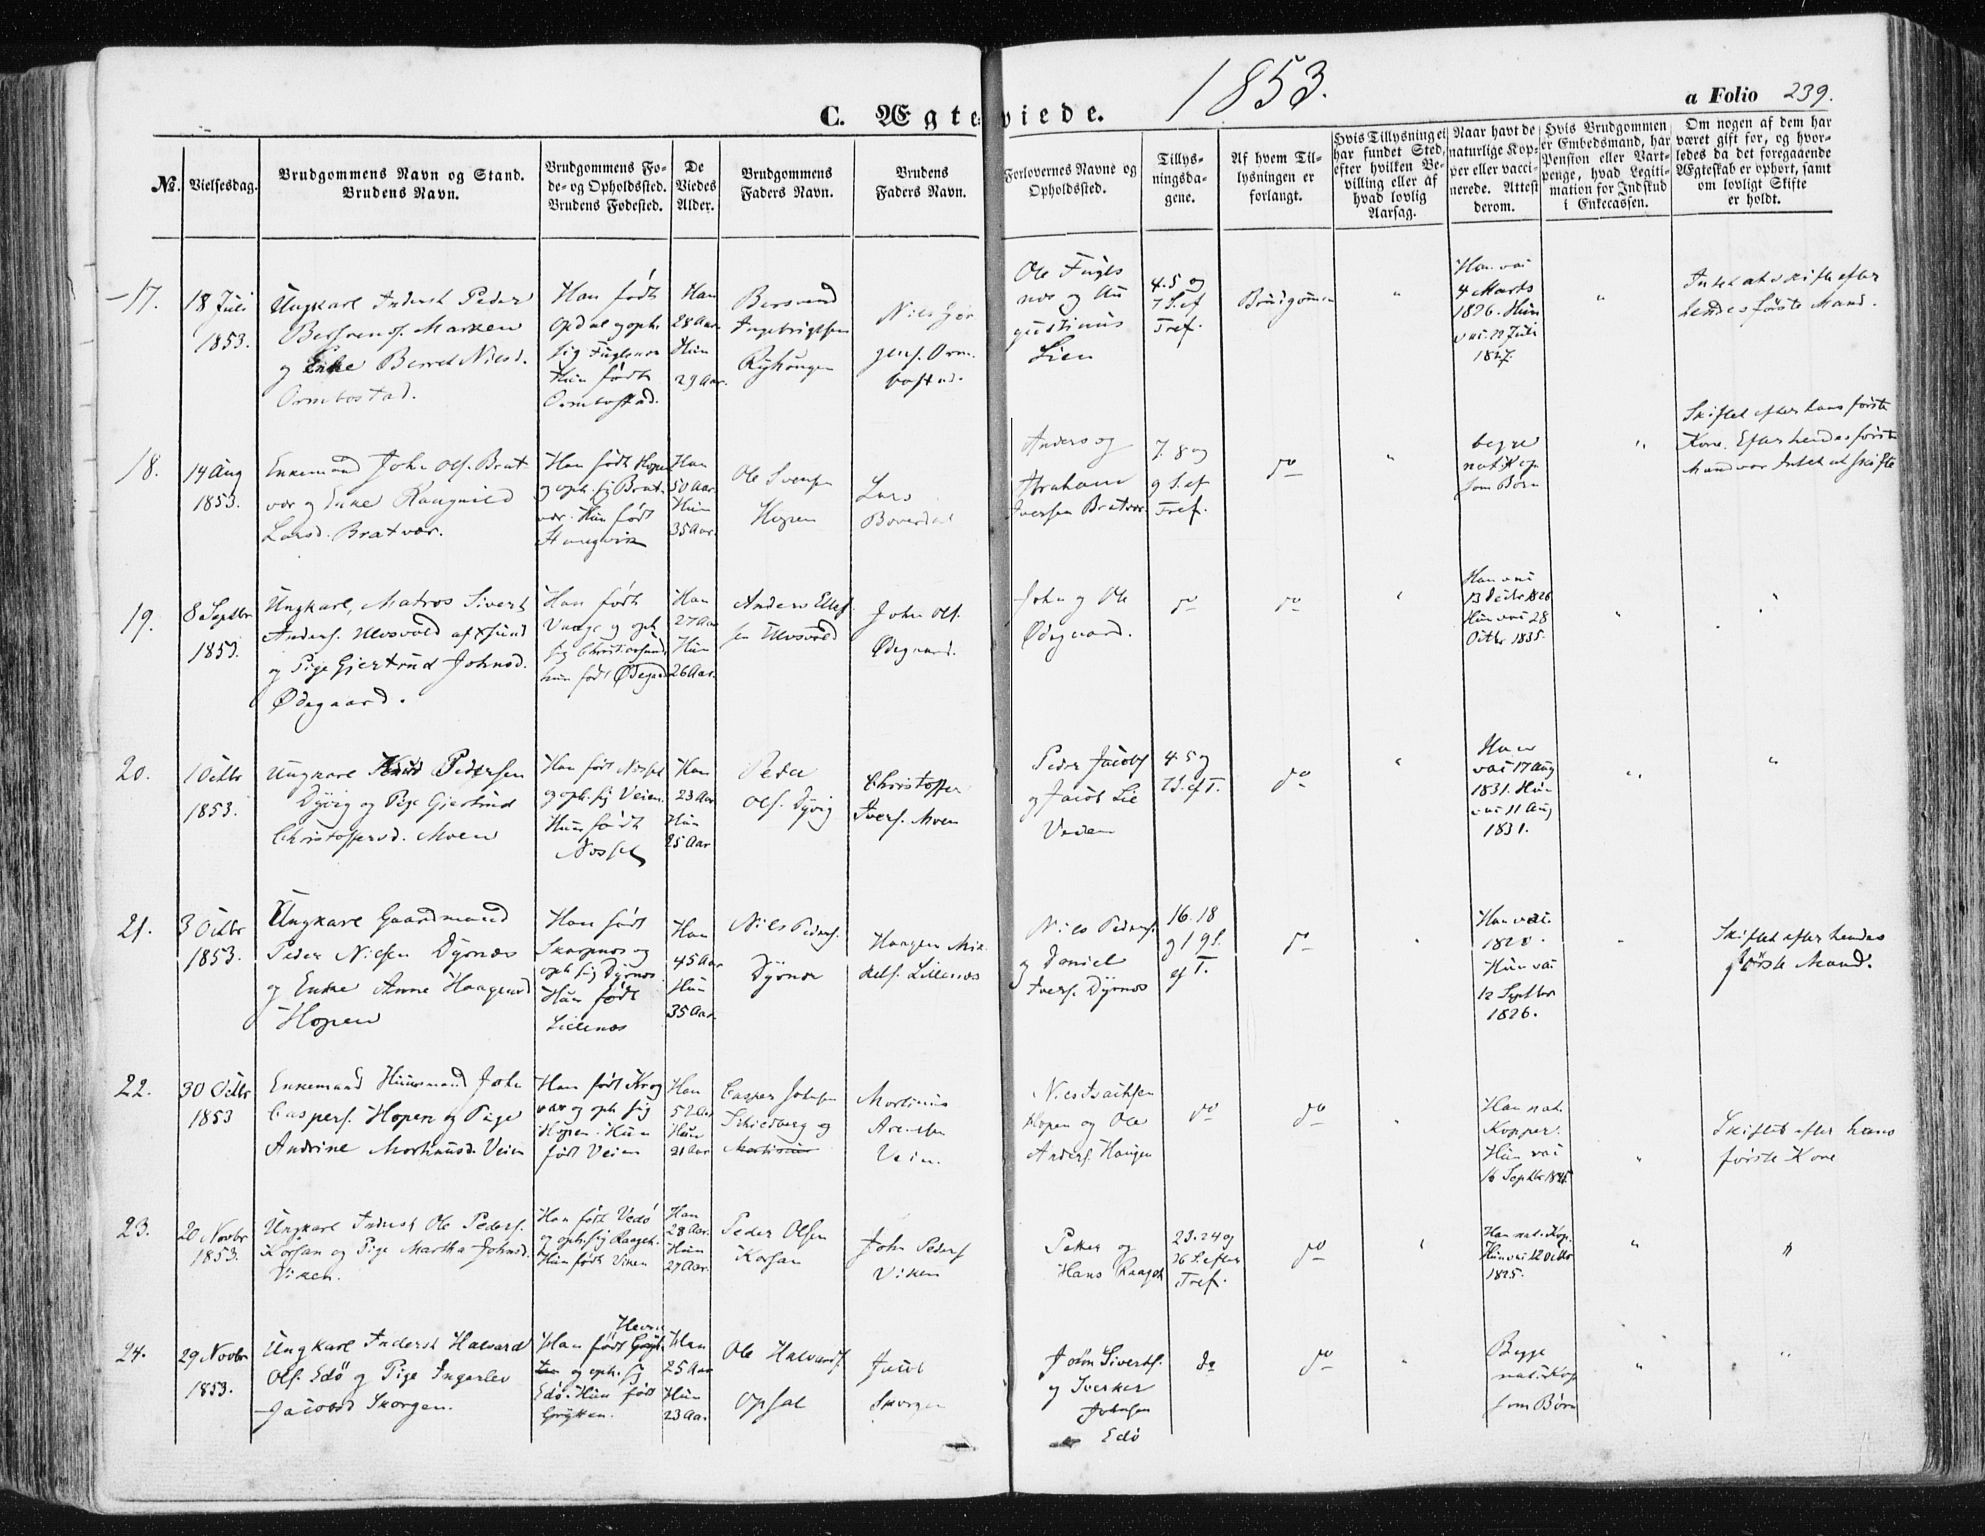 1853.
C. Ægteviede.
a Folio 239.
No.
Vielsesdag.
Brudgommens Navn og Stand.
Brudens Navn.
Brudgommens Fo-
de- og Opholdssted.
Brudens Fødested.
De
Viedes
Alder.
Brudgommens
Faders Navn.
Brudens
Faders Navn.
Forlovernes Navne og
Opholdssted.
Tillys-
ningsda-
gene.
Af hvem Til-
lysningen er
forlangt.
Hvis Tillysning ei
har fundet Sted,
efter hvilken Be-
villing eller af
hvad lovlig
Aarsag.
Naar havt de
naturlige Kop-
per eller vacci-
nerede. Attest
derom.
Hvis Brudgommen
er Embedsmand, har
Pension eller Vart-
penge, hvad Legiti-
mation for Indskud
i Enkecassen.
Om nogen af dem har
været gift før, og hvor-
ledes da det foregaaende
Ægteskab er ophørt, samt
om lovligt Skifte
er holdt.
17.
18 Juli
1853.
Ungkarl Inderst Peder
Marken
og Enke Berret Nielsd.
Ormbostad.
Han født
Opdal og oph.
sig Fuglsnes
Hun født
Ormbostad.
Han
28 Aar
Hun
29 Aar.
Bersvend
Ingebrigtsen
Niels
Orm-
bostad.
Ole Fugls
nes og Au
gustinus
Lien
4. 5 og
7 S. ef
Tref.
Brudgommen
"
Han vac
4 Marts
1826. Hun
vac. Juli
1827
"
Intet at skifte efter
hendes første Mand.
18.
14 Aug
1853.
Enkemand John Ols. Brat-
vær og Enke Rangnild
Larsd. Bratvær.
Han født Hopen
og oph. sig Brat-
vær. Hun født
Stangvik
Han
50 Aar.
Hun
35 Aar.
Ole Svensen
Hopen
Lars
Anders og
Abraham
Iversen Bratvær
7. 8 og
9 S. ef
Tref.
do
"
begge
nat. Kop.
som Børn
"
Skiftet efter hans første
Kone. Efter hendes første
Mand var Intet at skifte
19.
8 Septbr
1853.
Ungkarl, Matros Sivert
Anders. Ulvsvold af Xsund
og Pige Gjertrud Johnsd.
Ødegaard.
Han født
og oph
sig Christiansund
hun født Ødegaard
Han
27 Aar
Hun
26 Aar.
Anders Ellef-
sen Ulvsvold
John Ols.
Ødegaard.
John og Ole
Ødegaard.
do
do
"
Han vac
13 Decbr 1826
Hun vac 28
Octbr 1835.
"
"
20.
1 Octbr
1853.
Ungkarl Knud Pedersen
Dyvig og Pige Gjertrud
Christoffersd. Moen
Han født
og oph. sig Veien.
Hun født
Han
23 Aar
Hun
25 Aar
Peder
Ols. Dyvig
Christoffer
Ivers. Moen
Peder Jacobs
og Jacob Lie
4. 5 og
7 S. ef T.
do
"
Han
vac 17 Aug
1831. Hun
vac 11 Aug
1831.
"
"
21.
3 Octbr
1853.
Ungkarl Gaardmand
Peder Nielsen Dyrnes
og Enke Anne Haagensd
Hopen
Han født
Skarpnes og
oph sig Dyrnes
Hun født
Lillenes
Han
45 Aar
Hun
35 Aar.
Niels Peders.
Dyrnes
Haagen Mik-
kels. Lillenes
Niels Peders.
og Daniel
Ivers. Dyrnes
16. 18
og 19 S.
ef T.
do
Han vac.
1820.
Hun vac
12 Septbr
1826.
"
Skiftet efter hendes
første Mand.
22.
30 Octbr
1853
Enkemand Huusmand John
Caspers. Hopen og Pige
Andrine Morthinusd. Veien
Han født Krog
vær og oph sig
Hopen. Hun
født Veien
Han
52 Aar
Hun
21 Aar
Casper Johnsen
Martinus
Arentsen
Veien.
Niels Isachsen
Hopen og Ole
Anders. Haugen
do
do
Han nat.
Kopper.
Hun vac
16 Septbr
"
Skiftet efter hans
første Kone
23.
20 Novbr
1853.
Ungkarl Inderst Ole Peders.
Korsan og Pige Martha Johnsd.
Viken.
Han født Vedø
og oph. sig
Hun født Viken
Han
28 Aar.
Hun
27 Aar.
Peder Olsen
Korsan
John Peders
Viken
Petter og
Hans
23. 24 og
26 S. efter
Tref.
do
"
Han nat. Kop.
Hun vac 12 Octbr
1825.
"
"
24.
29 Novbr
1853.
Ungkarl Inderst Halvard
Ols. Edø og Pige Ingerlev
Jacobsd Skorgen.
Han født
og oph. sig
Edø. Hun født
Han
25 Aar
Hun
23 Aar
Ole Halvards.
Opsal
Jacob
Skorgen
John Siverts.
og Sverker
Johnsen
Edø
do
do
"
Begge
nat. Kop
som Børn
"
"